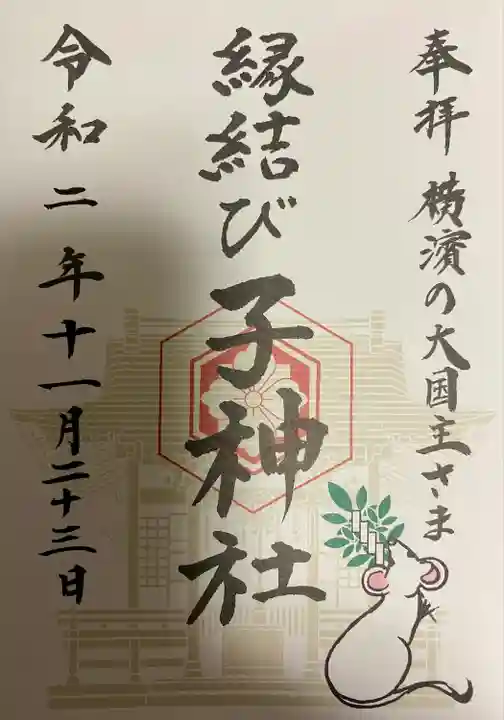 奉拝 横濱の大国主さま
縁結び子神社
令和二年十一月二十三日